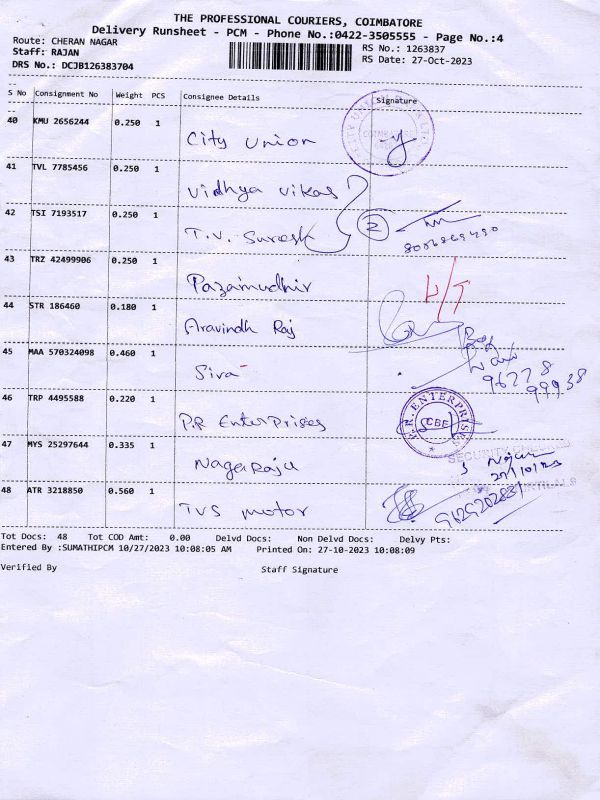 THE PROFESSIONAL COURIERS, COIMBATORE
Delivery Runsheet - PCM - Phone No.:0422-3505555 - Page No.:4
Route: CHERAN NAGAR RS No.: 1263837
Staff: RAJAN RS Date: 27-Oct-2023
DRS No.: DCJB126383704
S No Consignment No Weight PCS Consignee Details Signature
40 KMU 2656244 0.250 1 City Union
41 TVL 7785456 0.250 1 Vidhya Vikas
42 TSI 7193517 0.250 1 T.V. Suresh 2
43 TRZ 42499906 0.250 1 Pazamudhir L/T
44 STR 186460 0.180 1 Aravindh Raj
45 MAA 570324098 0.460 1 Siva 96778 99938
46 TRP 4495588 0.220 1 P.R Enterprises P.R. ENTERPRISES CBE
47 MYS 25297644 0.335 1 Nagaraju SECURITY
27/10/23
48 ATR 3218850 0.560 1 TVS motor
Tot Docs: 48 Tot COD Amt: 0.00 Delvd Docs: Non Delvd Docs: Delvy Pts:
Entered By :SUMATHIPCM 10/27/2023 10:08:05 AM Printed On: 27-10-2023 10:08:09
Verified By Staff Signature